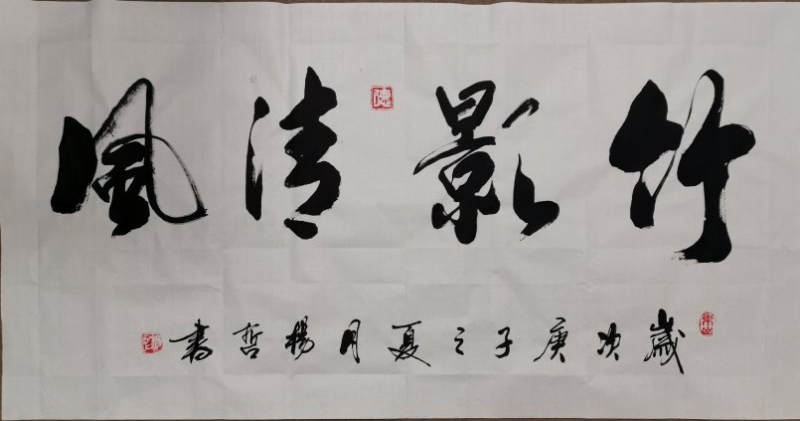 竹影清風
歲次庚子之夏月楊哲書